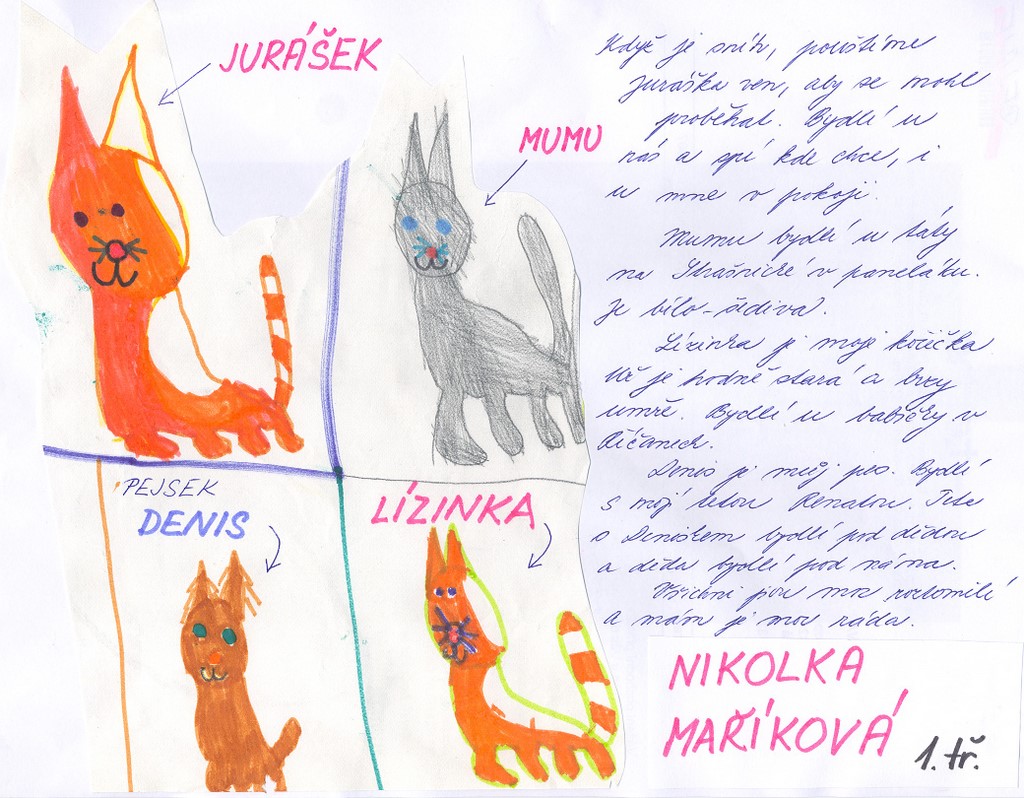 JURÁŠEK
MUMU
PEJSEK
DENIS
LÍZINKA
Když je sníh, pouštíme
Juráška ven, aby se mohl
proběhat. Bydlí u
nás a spí kde chce, i
u mne v pokoji.
Mumu bydlí u táty
na Strašnické v paneláku.
Je bílo-šedivá.
Lízinka je moje kočička
Už je hodně stará a brzy
umře. Bydlí u babičky v
Říčanech.
Denis je můj pes. Bydlí
s mojí tetou Renatou. Teta
s Denisem bydlí pod dědou
a děda bydlí pod náma.
Všichni jsou moc roztomilí
a mám je moc ráda.
NIKOLKA
MAŘÍKOVÁ
1. tř.